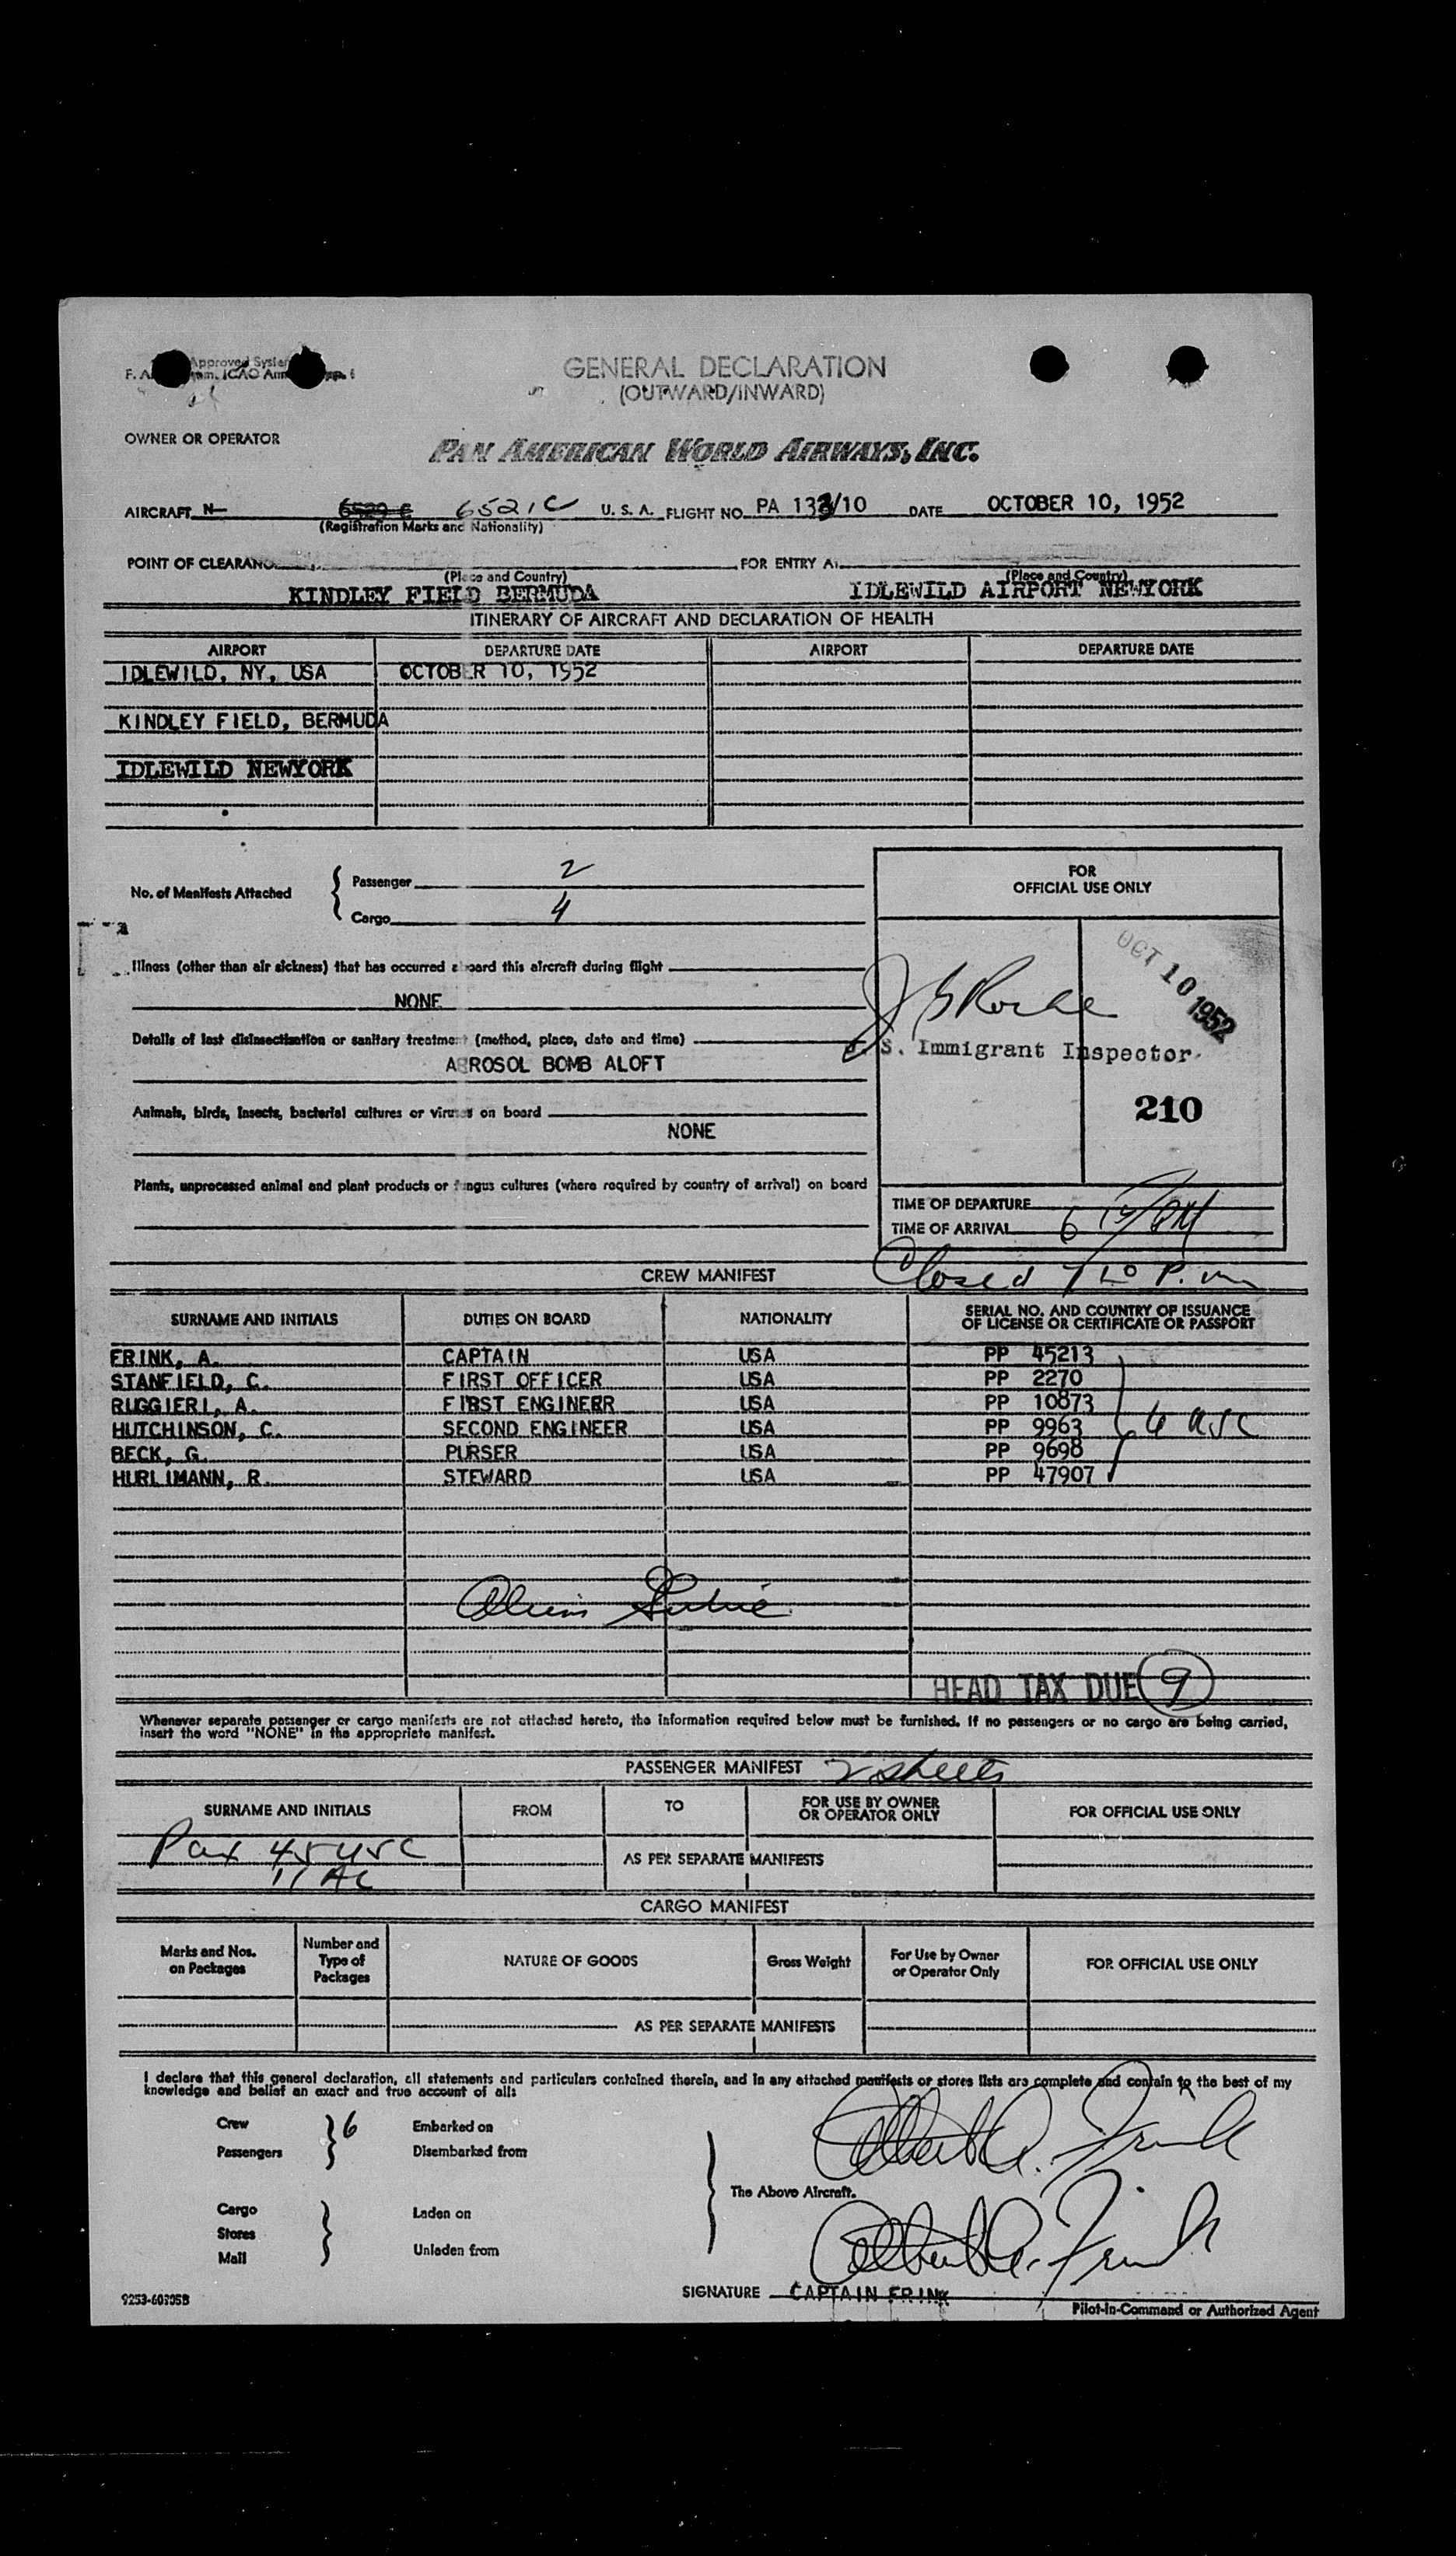 Approved System
GENERAL DECLARATION
(OUTWARD/INWARD)
OWNER OR OPERATOR
PAN AMERICAN WORLD AIRWAYS, INC.
AIRCRAFT N- 6520 C 6521C U. S. A. FLIGHT NO. PA 133/10 DATE OCTOBER 10, 1952
(Registration Marks and Nationality)
POINT OF CLEARANC FOR ENTRY A
(Place and Country) (Place and Country)
KINDLEY FIELD BERMUDA IDLEWILD AIRPORT NEWYORK
ITINERARY OF AIRCRAFT AND DECLARATION OF HEALTH
AIRPORT DEPARTURE DATE AIRPORT DEPARTURE DATE
IDLEWILD, NY, USA OCTOBER 10, 1952
KINDLEY FIELD, BERMUDA
IDLEWILD NEWYORK
No. of Manifests Attached
Passenger 2
Cargo 4
FOR
OFFICIAL USE ONLY
OCT 10 1952
Illness (other than air sickness) that has occurred aboard this aircraft during flight
NONE
Details of last disinsectization or sanitary treatment (method, place, date and time)
AEROSOL BOMB ALOFT
S. Immigrant Inspector
210
Animals, birds, insects, bacterial cultures or viruses on board
NONE
Plants, unprocessed animal and plant products or fungus cultures (where required by country of arrival) on board
TIME OF DEPARTURE
TIME OF ARRIVAL 6 15/PM
Closed 7 10 P.m
CREW MANIFEST
SURNAME AND INITIALS DUTIES ON BOARD NATIONALITY SERIAL NO. AND COUNTRY OF ISSUANCE
OF LICENSE OR CERTIFICATE OR PASSPORT
FRINK, A. CAPTAIN USA PP 45213
STANFIELD, C. FIRST OFFICER USA PP 2270
RUGGIERI, A. FIRST ENGINEER USA PP 10873
HUTCHINSON, C. SECOND ENGINEER USA PP 9963 6 USC
BECK, G. PURSER USA PP 9698
HURLIMANN, R. STEWARD USA PP 47907
HEAD TAX DUE 9
Whenever separate passenger or cargo manifests are not attached hereto, the information required below must be furnished. If no passengers or no cargo are being carried,
insert the word "NONE" in the appropriate manifest.
PASSENGER MANIFEST 2 sheets
SURNAME AND INITIALS FROM TO FOR USE BY OWNER
OR OPERATOR ONLY FOR OFFICIAL USE ONLY
Pax 45 USC
11 AC
AS PER SEPARATE MANIFESTS
CARGO MANIFEST
Marks and Nos.
on Packages
Number and
Type of
Packages
NATURE OF GOODS
Gross Weight
For Use by Owner
or Operator Only
FOR OFFICIAL USE ONLY
AS PER SEPARATE MANIFESTS
I declare that this general declaration, all statements and particulars contained therein, and in any attached manifests or stores lists are complete and contain to the best of my
knowledge and belief an exact and true account of all:
Crew 6 Embarked on
Passengers Disembarked from
Albert A. Frink
The Above Aircraft.
Cargo Laden on
Stores
Mail Unladen from
Albert A. Frink
SIGNATURE CAPTAIN FRINK
9253-60305B
Pilot-in-Command or Authorized Agent